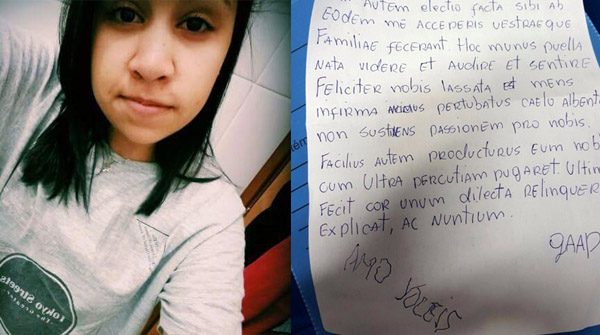 Autem electio facta sibi ab
Eodem me accederis vestraeque
Familiae fecerant. Hoc munus puella
nata videre et audire et sentire
Feliciter nobis lassata et mens
infirma pertubatus caelo albente
non sustiens passionem pro nobis.
Facilius autem producturus eum nob
cum ultra percutiam pugaret. Ultim
Fecit cor unum dilecta relinquer
explicat, ac nuntium.
gaap
Amo voceis
tokyo streets